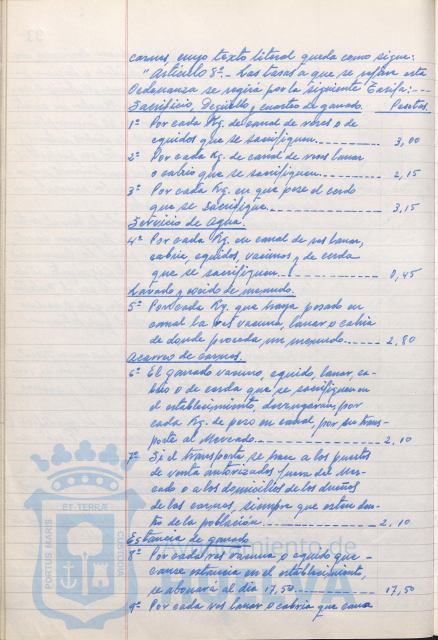 carnes, cuyo texto literal queda como sigue:
"Artículo 8º.- Las tasas a que se refiere esta
Ordenanza se regirá por la siguiente Tarifa:---
Sacrificio, Degüello y cuarteo de ganado. Pesetas
1º Por cada Kg. de canal de reses o de
equidos que se sacrifiquen. 3,00
2º Por cada Kg. de canal de reses lanar
o cabrio que se sacrifiquen. 2,15
3º Por cada Kg. en que pese el cerdo
que se sacrifique. 3,15
Servicio de Agua.
4º Por cada Kg. en canal de res lanar,
cabria, equidos, vacunos y de cerda
que se sacrifiquen. 0,45
Lavado y cocido de menudo.
5º Por cada Kg. que haya pesado en
canal la res vacuna, lanar o cabria
de donde proceda un menudo. 2,80
Acarreo de carnes.
6º El ganado vacuno, equido, lanar, ca-
brio o de cerda que se sacrifiquen en
el establecimiento, devengarán, por
cada Kg. de peso en canal, por su trans-
porte al Mercado. 2,10
7º Si el transporte se hace a los puestos
de venta autorizados fuera del Mer-
cado o a los domicilios de los dueños
de las carnes, siempre que esten den-
tro de la población. 2,10
Estancia de ganado
8º Por cada res vacuna o equido que
cause estancia en el establecimiento,
se abonará al día 17,50 17,50
9º Por cada res lanar o cabria que cause
PORTUS MARIS
ET TERRÆ
CUSTODIA
Ayuntamiento de
HUELVA